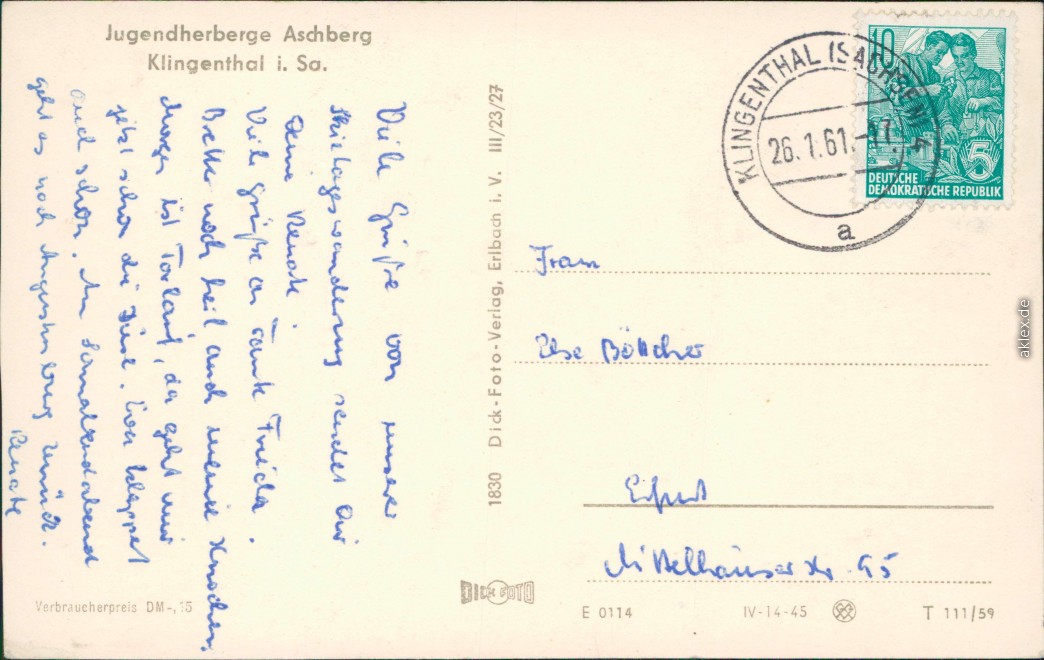 Jugendherberge Aschberg
Klingenthal i. Sa.
Viele Grüße von unserer
Skitageswanderung sendet Dir
Deine Renate.
Viele Grüße an Tante Frieda.
Bretter noch heil auch meine Knochen,
Morgen ist Torlauf, da geht mir
jetzt schon die Düse. Eva klappert
auch schon. Am Sonnabend
geht es nach Augustusburg zurück.
Renate
Verbraucherpreis DM-,15
1830 Dick-Foto-Verlag, Erlbach i. V. III/23/27
DICK FOTO
KLINGENTHAL (SACHSEN)
26.1.61.-17.
a
10
5
DEUTSCHE
DEMOKRATISCHE REPUBLIK
Frau
Else Böttcher
Erfurt
Mittelhäuser Str. 95
E 0114 IV-14-45 T 111/59
aklex.de